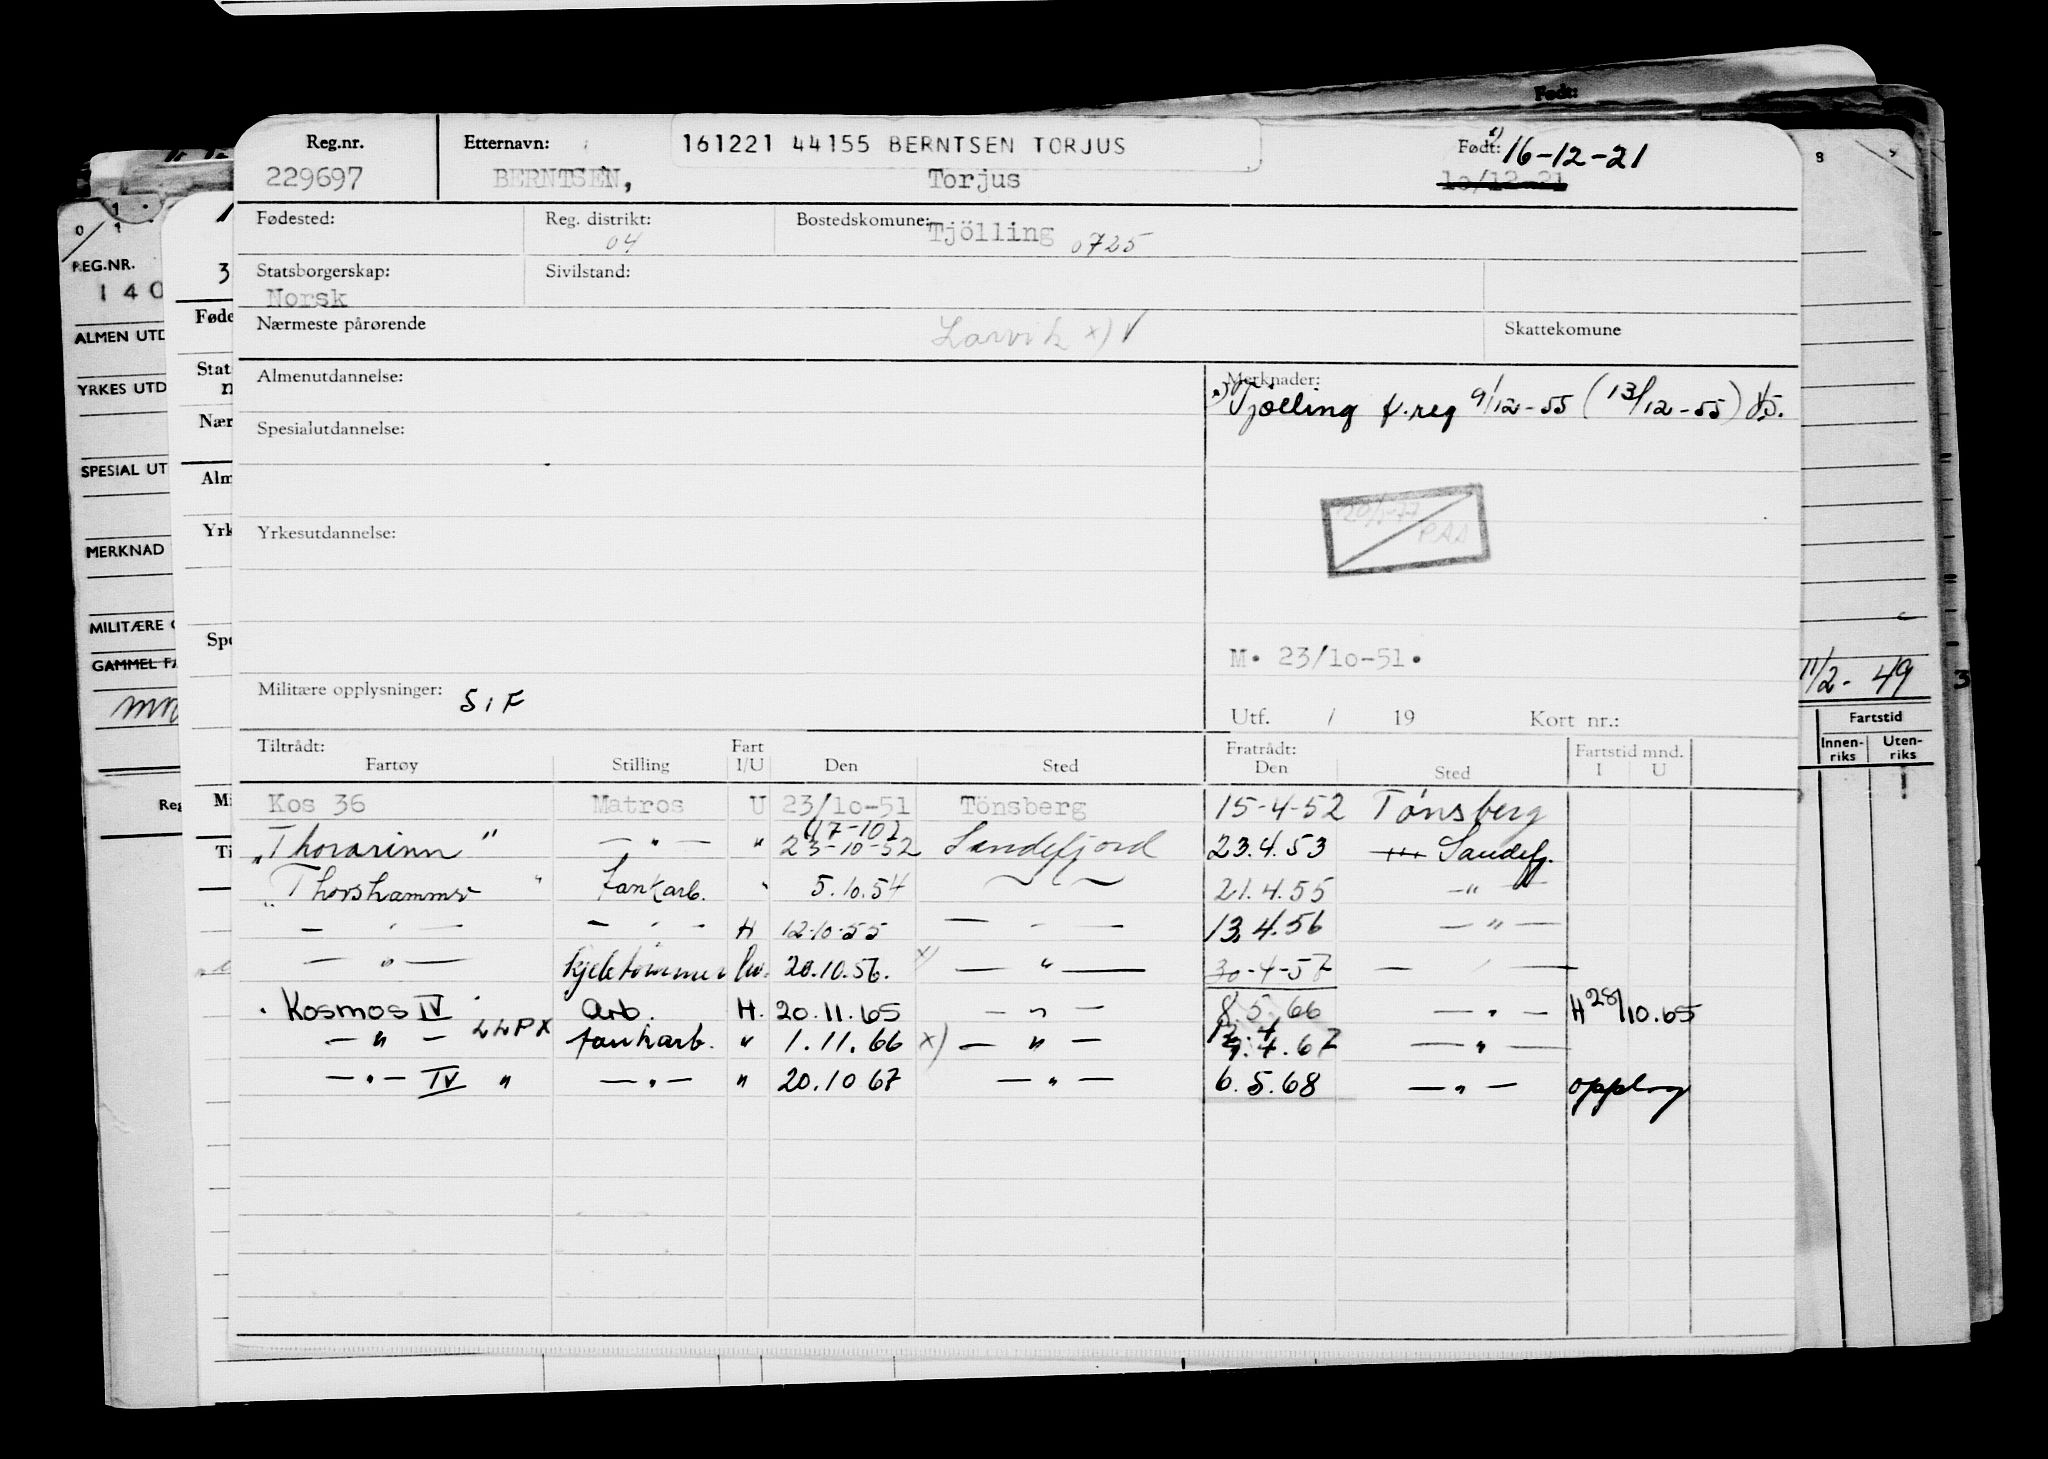 Født:
Reg.nr. Etternavn: 161221 44155 BERNTSEN TORJUS Født: 16-12-21
229697 BERNTSEN, Torjus 10/12-21
Fødested: Reg. distrikt: 04 Bostedskomune: Tjölling 0725
Statsborgerskap: Sivilstand:
Norsk
Nærmeste pårørende Larvik x) Skattekomune
Almenutdannelse: Merknader:
x) Tjølling f.reg 9/12-55 (13/12-55)
Spesialutdannelse:
PAA
Yrkesutdannelse:
M. 23/10-51.
Militære opplysninger: S.F
Utf. / 19 Kort nr.:
Tiltrådt: Fart Fratrådt: Fartstid mnd.
Fartøy Stilling I/U Den Sted Den Sted I U
Kos 36 Matros U 23/10-51 Tönsberg 15-4-52 Tønsberg
(17-10)
"Thorarinn" — " — " 23-10-52 Sandefjord 23.4.53 Sandefj.
"Thorshammer" tankarb. " 5.10.54 — " — 21.4.55 — " —
— " — — " — H 12-10-55 — " — 13.4.56 — " —
— " — kjeletømmer 20.10.56. x) — " — 30-4-57 — " —
Kosmos IV Arb. H. 20.11.65 — " — 8.5.66 — " — H 28/10.65
— " — LLPX tankarb. " 1.11.66 x) — " — 12.4
7.4.67 — " —
— " — IV " — " — " 20.10 67 — " — 6.5.68 — " — opplag
0 1
REG.NR.
140
ALMEN UTD
YRKES UTD
SPESIAL UT
MERKNAD
MILITÆRE
GAMMEL FA
Reg
3
Føde
Stats
n
Nær
Alm
Yrk
Spe
Mi
Ti
8
11/2-49 3
Fartstid
Innen-
riks Uten-
riks